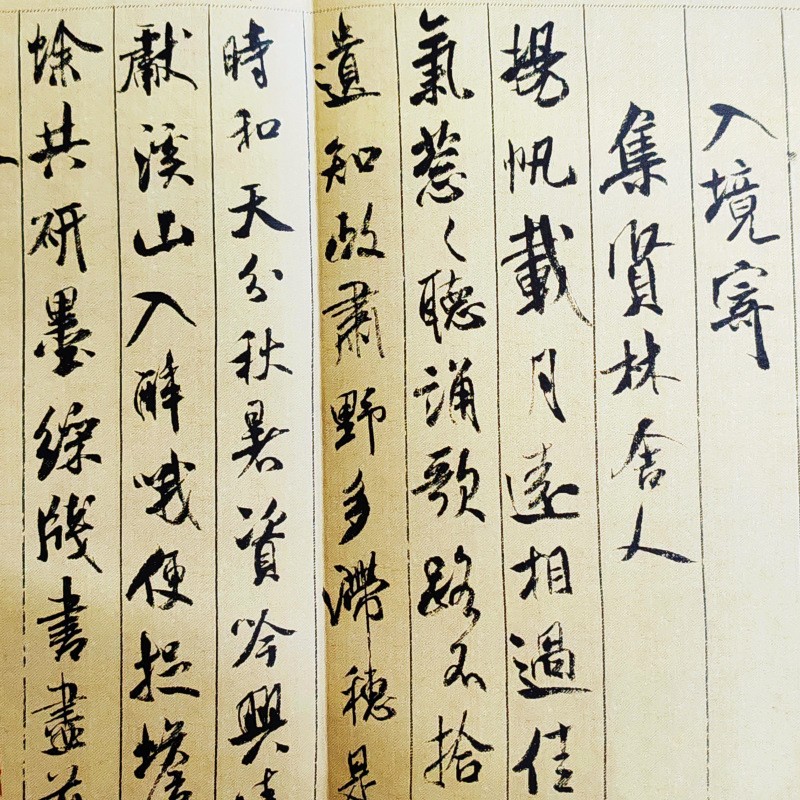 入境寄
集賢林舍人
揚帆載月遠相過佳
氣葱々聽誦歌路不拾
遺知政肅野多滯穗是
時和天分秋暑資吟興
獻溪山入醉哦便捉蟾
蜍共研墨綵牋書盡